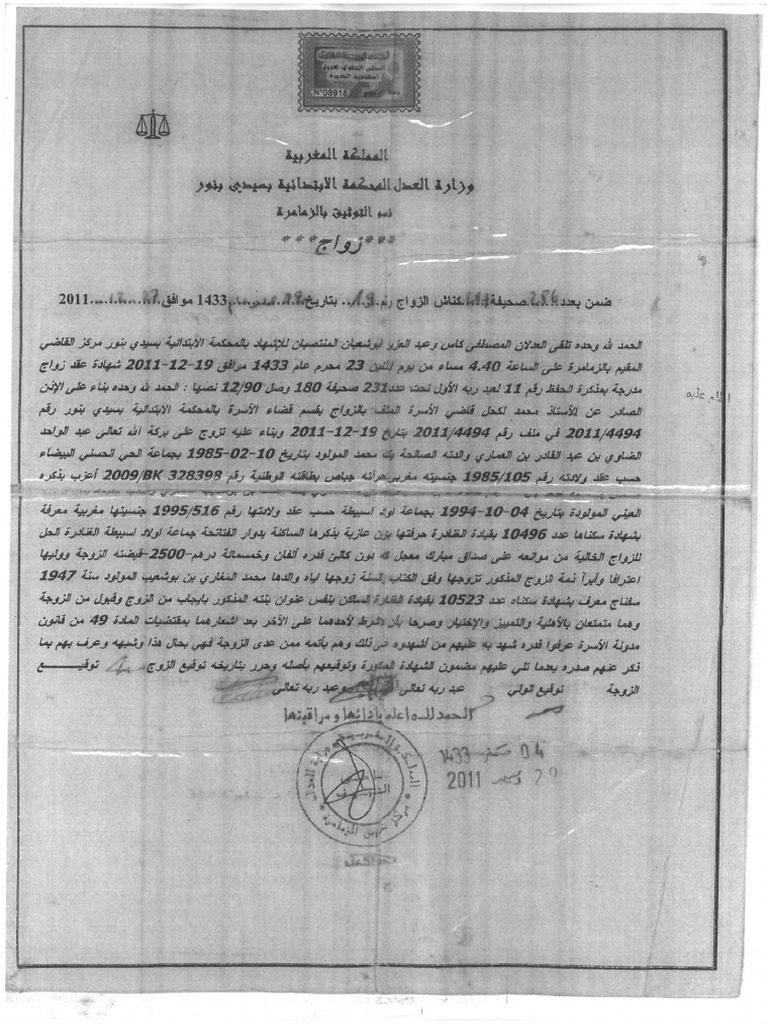 N°08916
المملكة المغربية
وزارة العدل المحكمة الابتدائية بسيدي بنور
قسم التوثيق بالزمامرة
***زواج***
ضمن بعدد 256 صحيفة كناش الزواج رقم 19 بتاريخ 1433 موافق 2011
الحمد لله وحده تلقى العدلان المصطفى كاس وعبد العزيز ابوشعبان المنتصبان للإشهاد بالمحكمة الابتدائية بسيدي بنور مركز القاضي
المقيم بالزمامرة على الساعة 4.40 مساء من يوم اثنين 23 محرم عام 1433 موافق 19-12-2011 شهادة عقد زواج
مدرجة بمذكرة الحفظ رقم 11 لعبد ربه الأول تحت عدد 231 صحيفة 180 وصل 12/90 نصها : الحمد لله وحده بناء على الإذن
الصادر عن الأستاذ محمد لكحل قاضي الأسرة المكلف بالزواج بقسم قضاء الأسرة بالمحكمة الابتدائية بسيدي بنور رقم
2011/4494 في ملف رقم 2011/4494 بتاريخ 19-12-2011 وبناء عليه تزوج على بركة الله تعالى عبد الواحد
الضاوي بن عبد القادر بن العماري والدته الصالحة بنت محمد المولود بتاريخ 10-02-1985 بجماعة الحي الحسني البيضاء
حسب عقد ولادته رقم 1985/105 جنسيته مغربي حرفته جباص بطاقته الوطنية رقم 2009/BK 328398 أعزب بذكره
العيني المولودة بتاريخ 04-10-1994 بجماعة اولاد اسبيطة حسب عقد ولادتها رقم 1995/516 جنسيتها مغربية معرفة
بشهادة سكناها عدد 10496 بقيادة الغنادرة حرفتها بدون عازبة بذكرها الساكنة بدوار الفتاتحة جماعة اولاد اسبيطة الغنادرة الحل
للزواج الخالية من موانعه على صداق مبارك معجل كله دون كالئ قدره ألفان وخمسمائة درهم-2500-قبضته الزوجة ووليها
اعترافا وأبرآ ذمة الزوج المذكور تزوجها وفق الكتاب والسنة زوجها اياه والدها محمد المغاري بن بوشعيب المولود سنة 1947
سفناج معرف بشهادة سكناه عدد 10523 بقيادة الغنادرة الساكن بنفس عنوان بنته المذكور بايجاب من الزوج وقبول من الزوجة
وهما متمتعان بالأهلية والتمييز والإختيار وصرحا بأن لاشرط لأحدهما على الآخر بعد اشعارهما بمقتضيات المادة 49 من قانون
مدونة الأسرة عرفوا قدره شهد به عليهم من أشهدوه على ذلك وهم بأتمه ممن عدى الزوجة فهي بحال هذا وشبهه وعرف بهم بما
ذكر عنهم صدره بعدما تلي عليهم مضمون الشهادة المذكورة وتوقيعهم بأصله وحرر بتاريخه توقيع الزوج توقيع
الزوجة توقيع الولي عبد ربه تعالى وعبد ربه تعالى
الحمد لله اعلم بأدائها ومراقبتها
04 صفر 1433
29 دسمبر 2011